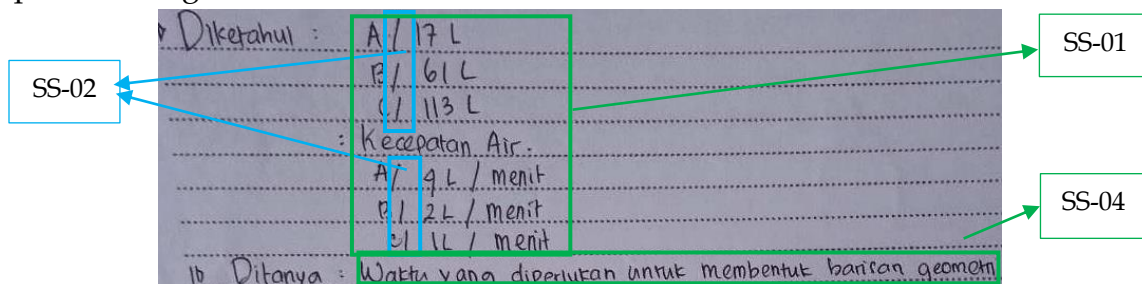 Diketahui : A / 17 L
B / 61 L
C / 113 L
: Kecepatan Air.
A / 9 L / menit
B / 2 L / menit
C / 1 L / menit
Ditanya : Waktu yang diperlukan untuk membentuk barisan geometri
SS-01
SS-02
SS-04